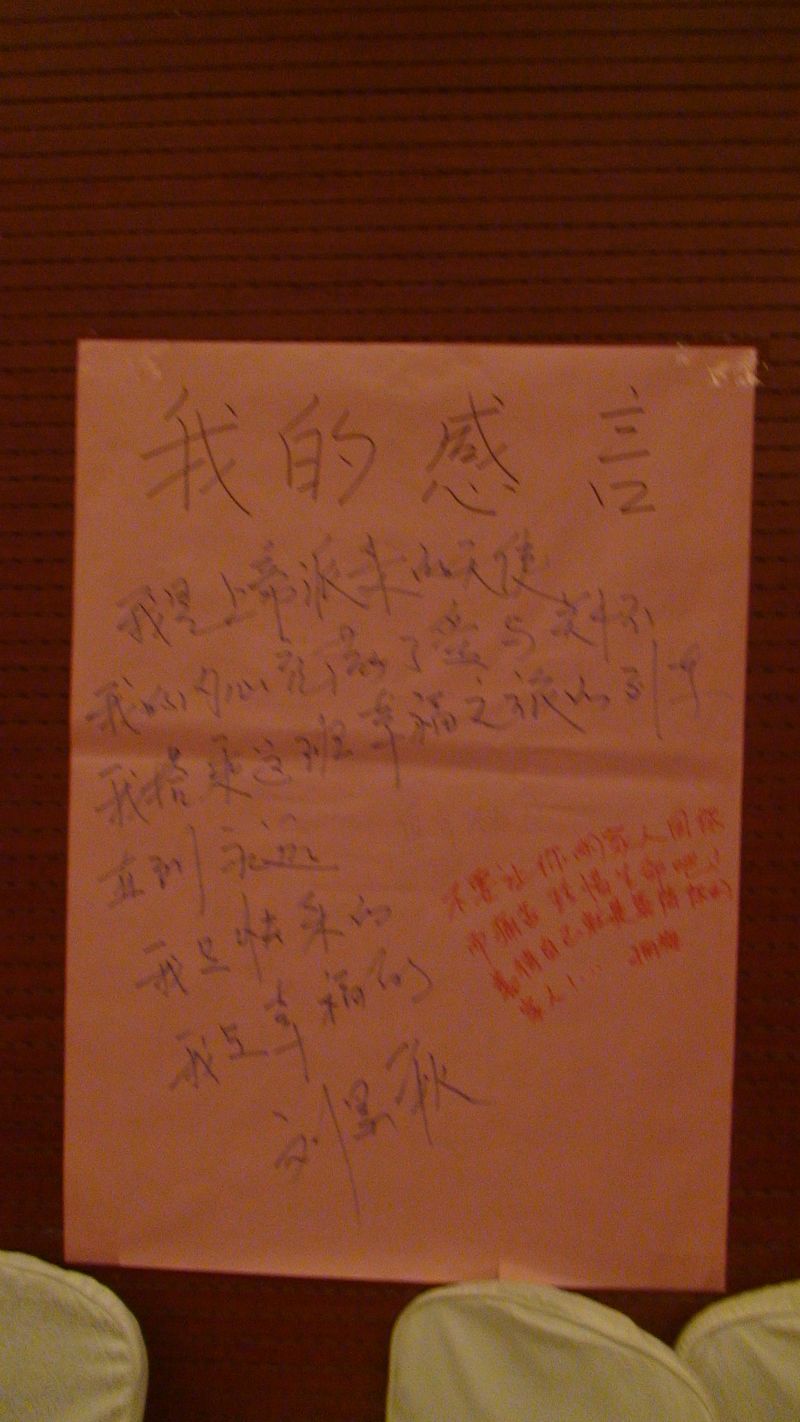 我的感言
我是上帝派来的天使
我的内心充满了爱与关怀
我搭乘这班幸福之旅的列车
直到永远
我是快乐的
我是幸福的
刘 秋
不要让你的家人因你
而痛苦 珍惜生命吧!
珍惜自己就是珍惜你的
家人!...